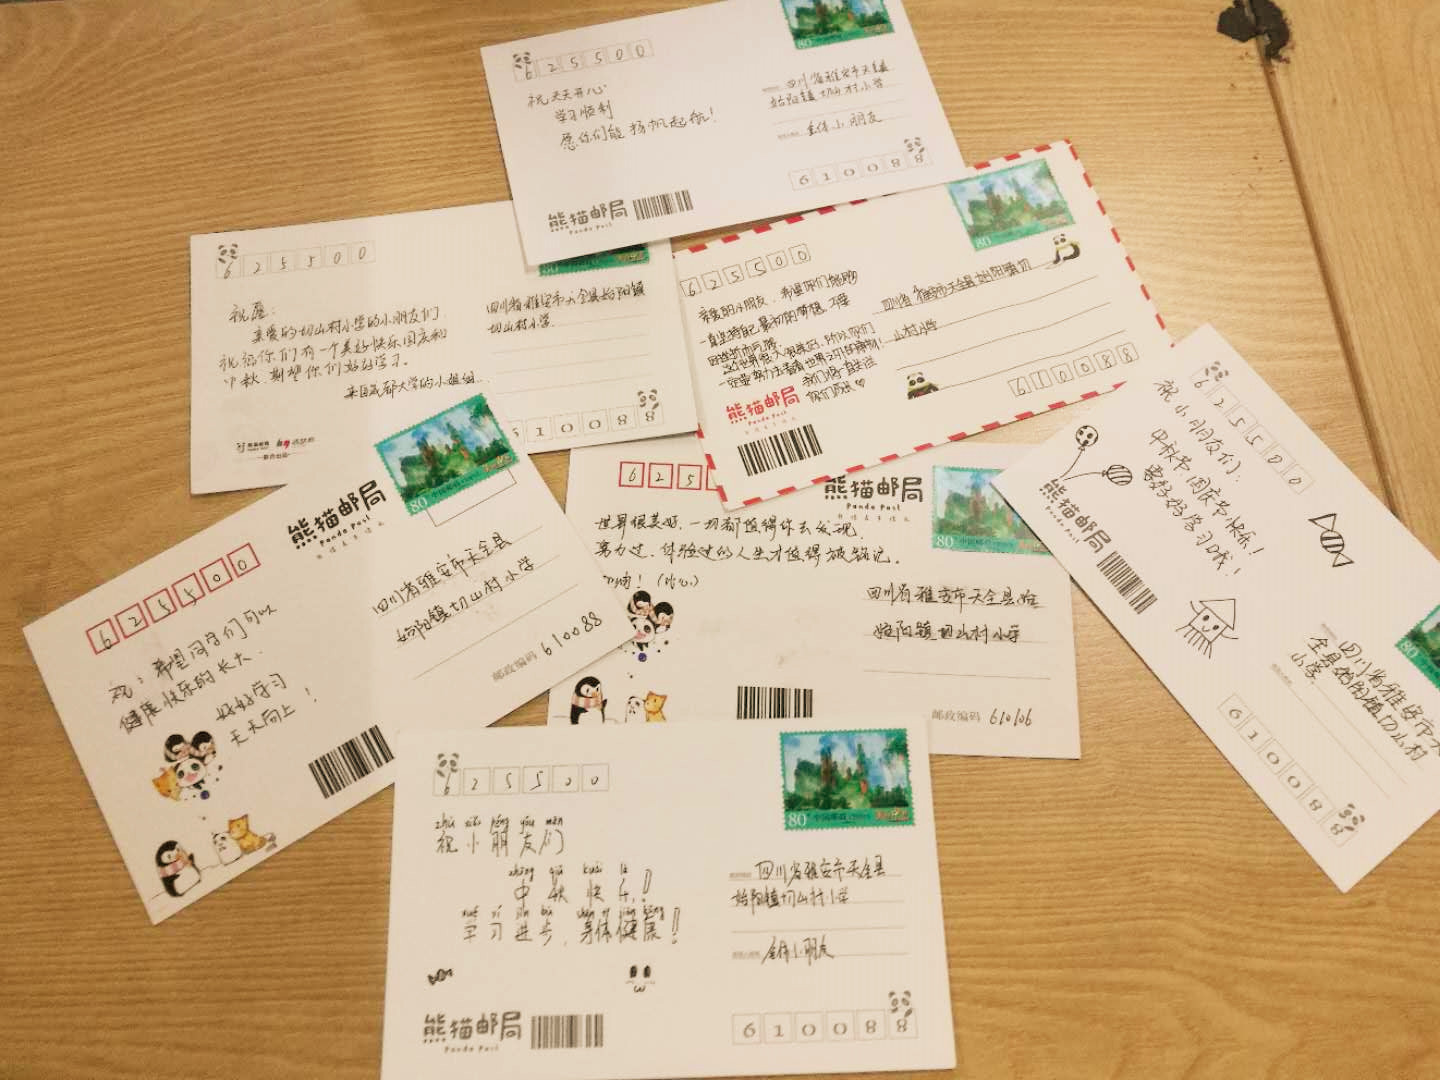 625500
祝天天开心
学习顺利
愿你们能扬帆起航!
80
四川省雅安市天全县
始阳镇切山村小学
全体小朋友
610088
熊猫邮局
Panda Post
625500
祝愿:
亲爱的切山村小学的小朋友们
祝福你们有一个美好快乐国庆和
中秋.期望你们好好学习.
来自成都大学的小姐姐...
80
四川省雅安市天全县始阳镇
切山村小学.
610088
625500
亲爱的小朋友,希望你们能够
一直坚持自己最初的梦想,不要
世界很大很美好,所以你们
一定要努力去看看世界之外的精彩!
我们将一直关注
你们成长
80
四川省雅安市天全县始阳镇切
山村小学
610088
熊猫邮局
Panda Post
625500
祝小朋友们:
中秋节国庆节快乐!
要好好学习哦!
熊猫邮局
Panda Post
80
四川省雅安市天
全县始阳镇切山村
小学.
610088
625500
祝:希望同学们可以
健康快乐的长大.
好好学习
天天向上!
熊猫邮局
Panda Post
80
四川省雅安市天全县
始阳镇切山村小学
邮政编码 610088
625
熊猫邮局
Panda Post
世界很美好,一切都值得你去发现,
努力过、体验过的人生才值得被铭记.
加油!
80
四川省雅安市天全县始
始阳镇切山村小学
邮政编码 610106
625500
zhù xiǎo péng yǒu mén
祝小朋友们
zhōng qiū kuài lè
中秋快乐!
xué xí jìn bù shēn tǐ jiàn kāng
学习进步,身体健康!
熊猫邮局
Panda Post
80 中国邮政
四川省雅安市天全县
始阳镇切山村小学
全体小朋友
610088